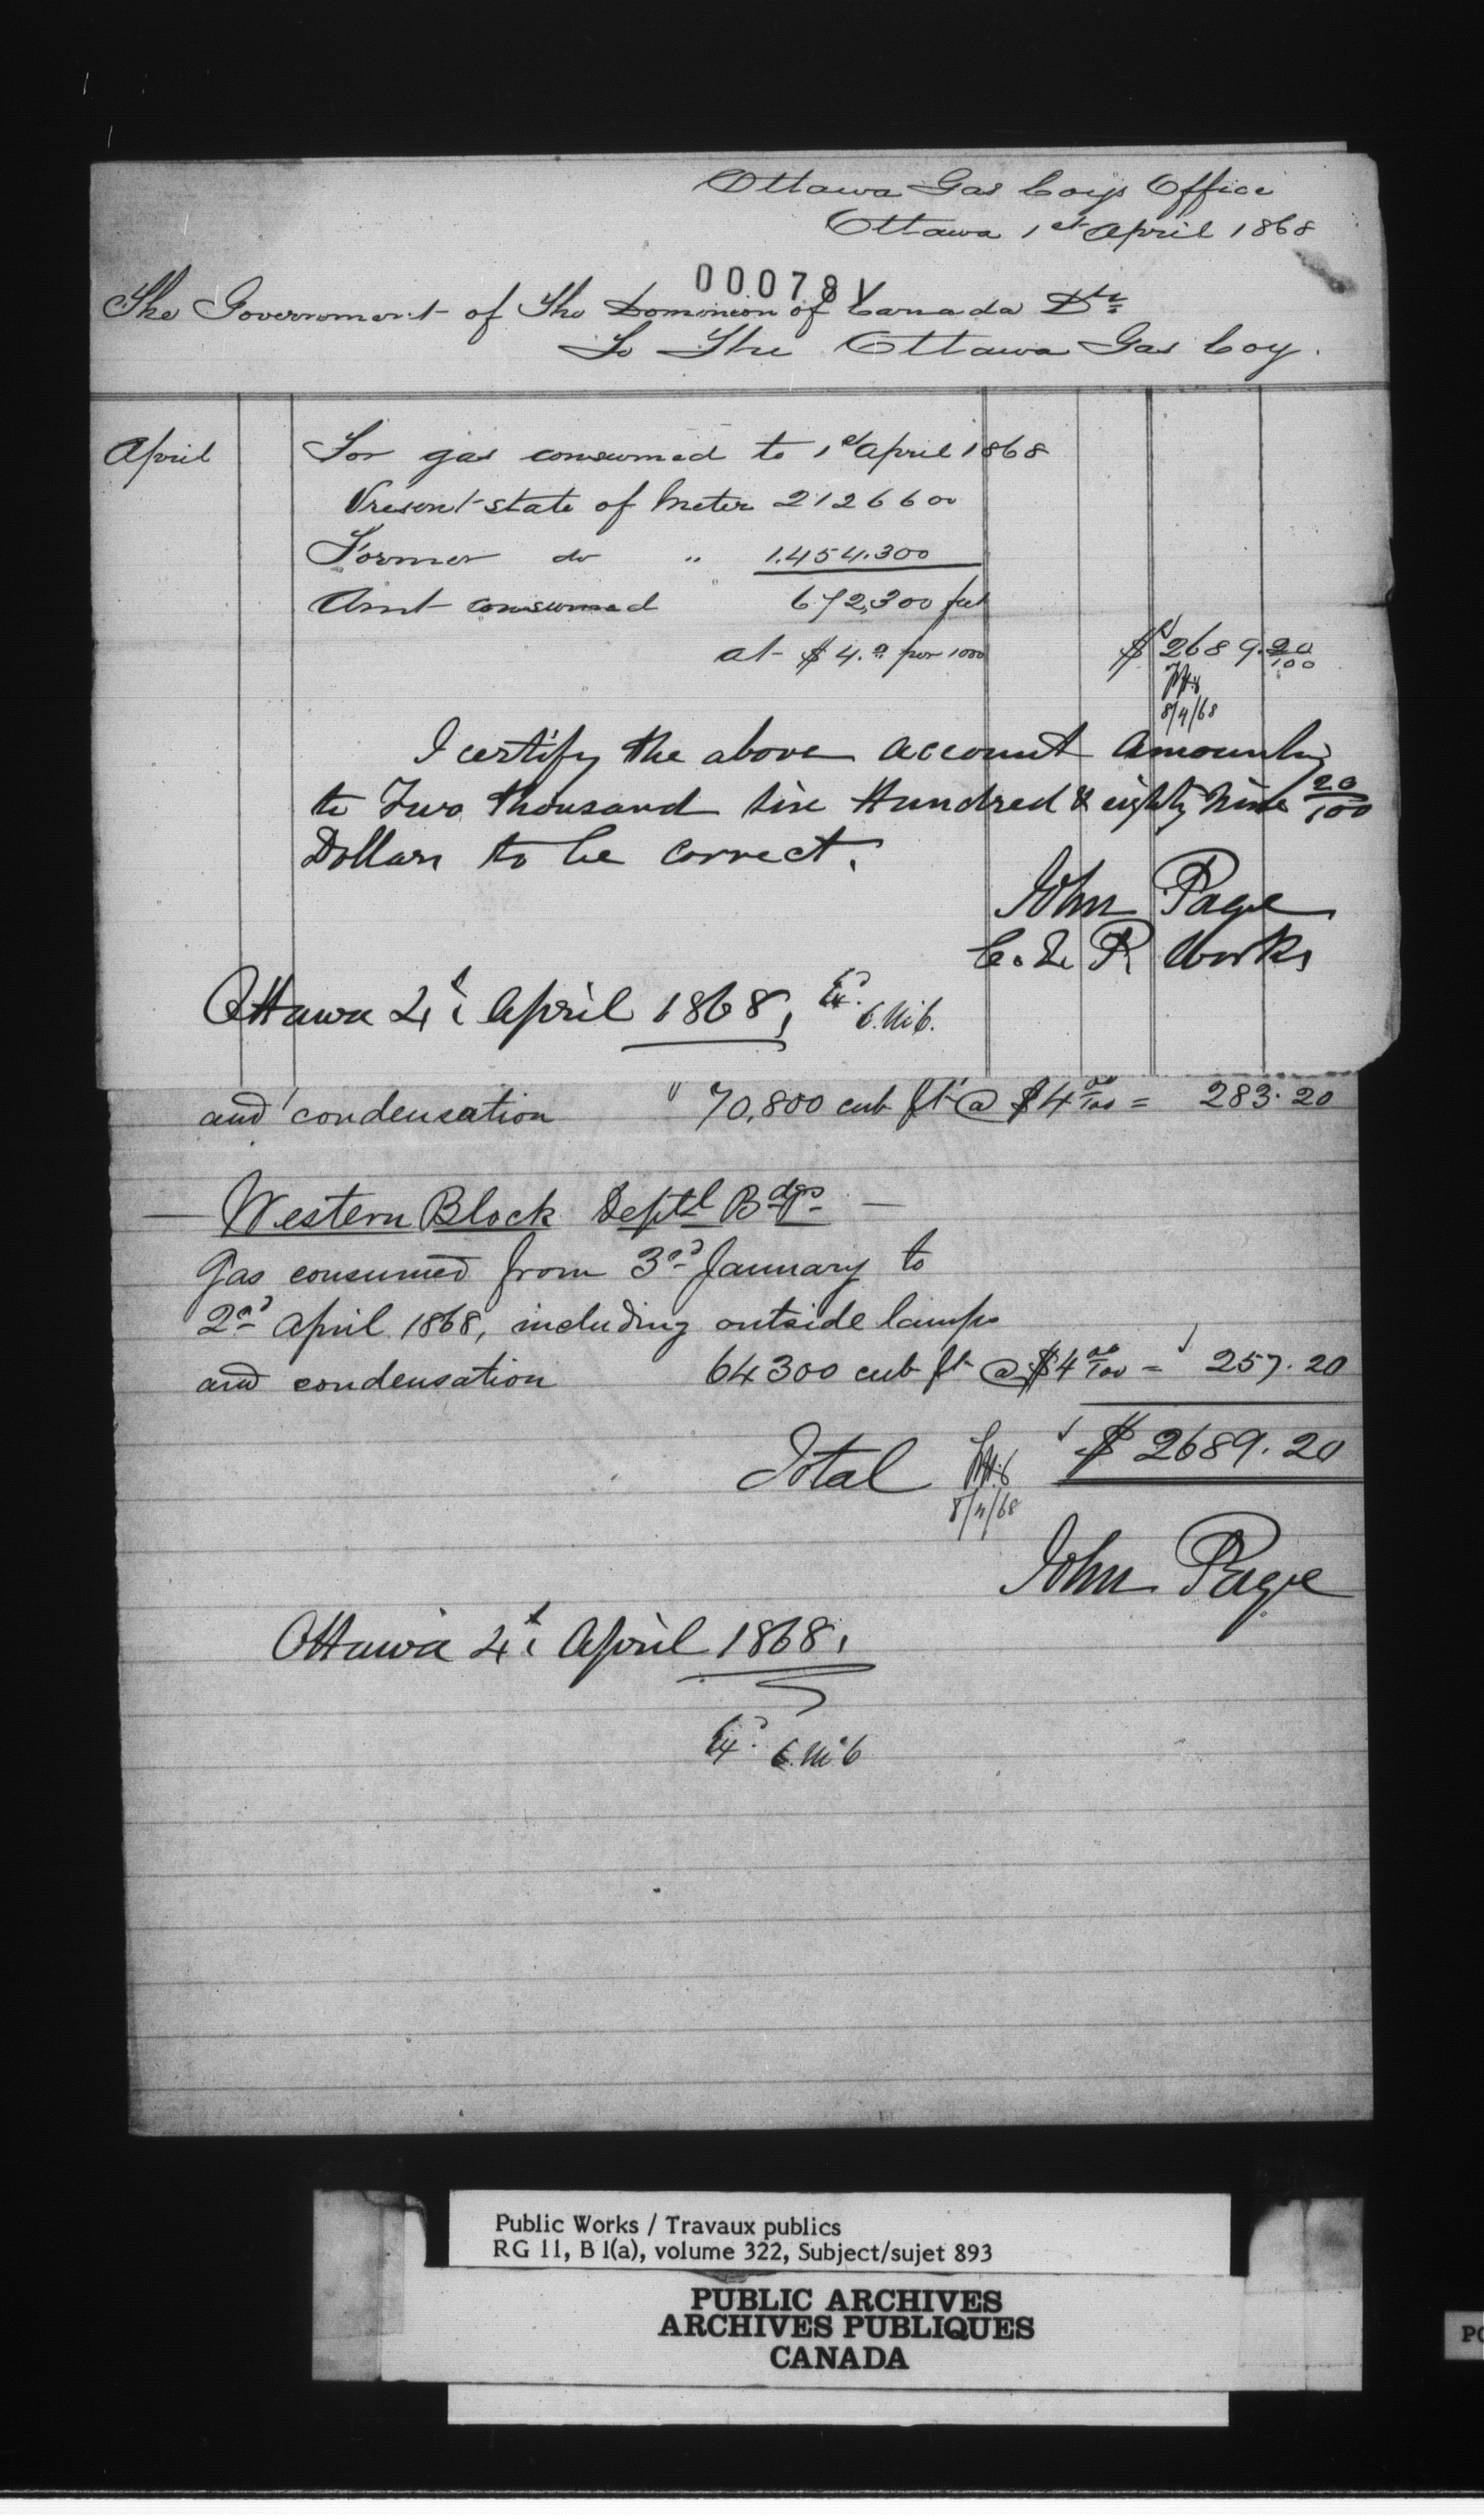 Ottawa Gas Coys Office
Ottawa 1st April 1868
000781
The Government of The Dominion of Canada Dr
To The Ottawa Gas Coy.
April
For gas consumed to 1st April 1868
Present state of Meter 2126600
Former do " 1.454.300
Amt consumed 672,300 feet
at $4.00 per 1000 $2689.20/100
8/4/68
I certify the above account amounting
to Two thousand six Hundred & eighty Nine 20/100
Dollars to be correct.
John Page
C. E. P. Works
Ottawa 4th April 1868,
Exd.
and condensation " 70,800 cub ft @ $4 00/100 = 283.20
— Western Block Deptl Bdgs —
Gas consumed from 3rd January to
2nd April 1868, including outside lamps
and condensation 64300 cub ft @ $4 00/100 = 257.20
Total $2689.20
8/4/68
John Page
Ottawa 4th April 1868,
Exd.
Public Works / Travaux publics
RG 11, B 1(a), volume 322, Subject/sujet 893
PUBLIC ARCHIVES
ARCHIVES PUBLIQUES
CANADA